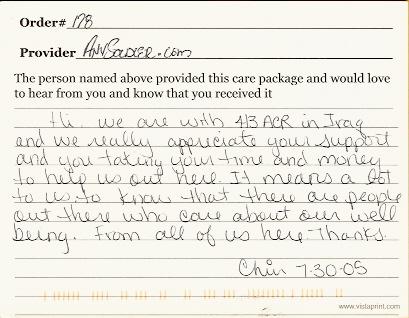 Order# 178
Provider AnySoldier.com
The person named above provided this care package and would love
to hear from you and know that you received it
Hi, we are with 4/3 ACR in Iraq
and we really appreciate your support
and you taking your time and money
to help us out here. It means a lot
to us to know that there are people
out there who care about our well
being. From all of us here-Thanks.
7-30-05
www.vistaprint.com